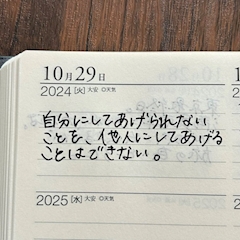 10月29日
2024 [火] 大安 ◎天気
自分にしてあげられない
ことを、他人にしてあげる
ことはできない。
2025 [水] 大安 ◎天気